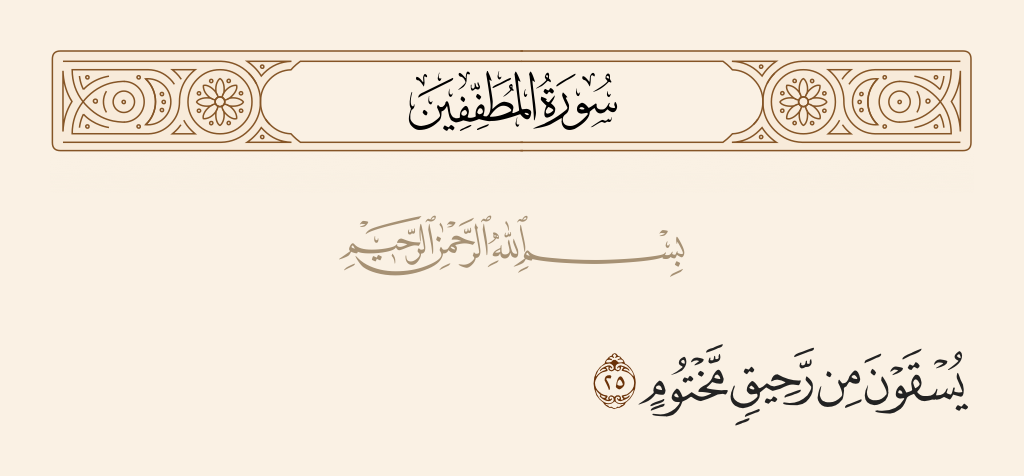 سُورَةُ المُطَفِّفِينَ
بِسْمِ ٱللَّهِ ٱلرَّحْمَٰنِ ٱلرَّحِيمِ
يُسْقَوْنَ مِن رَّحِيقٍ مَّخْتُومٍ ٢٥